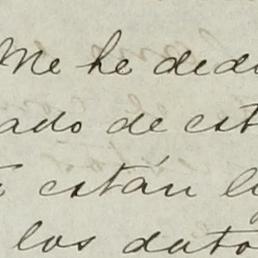 Me he dedi
ado de est
están
los dato